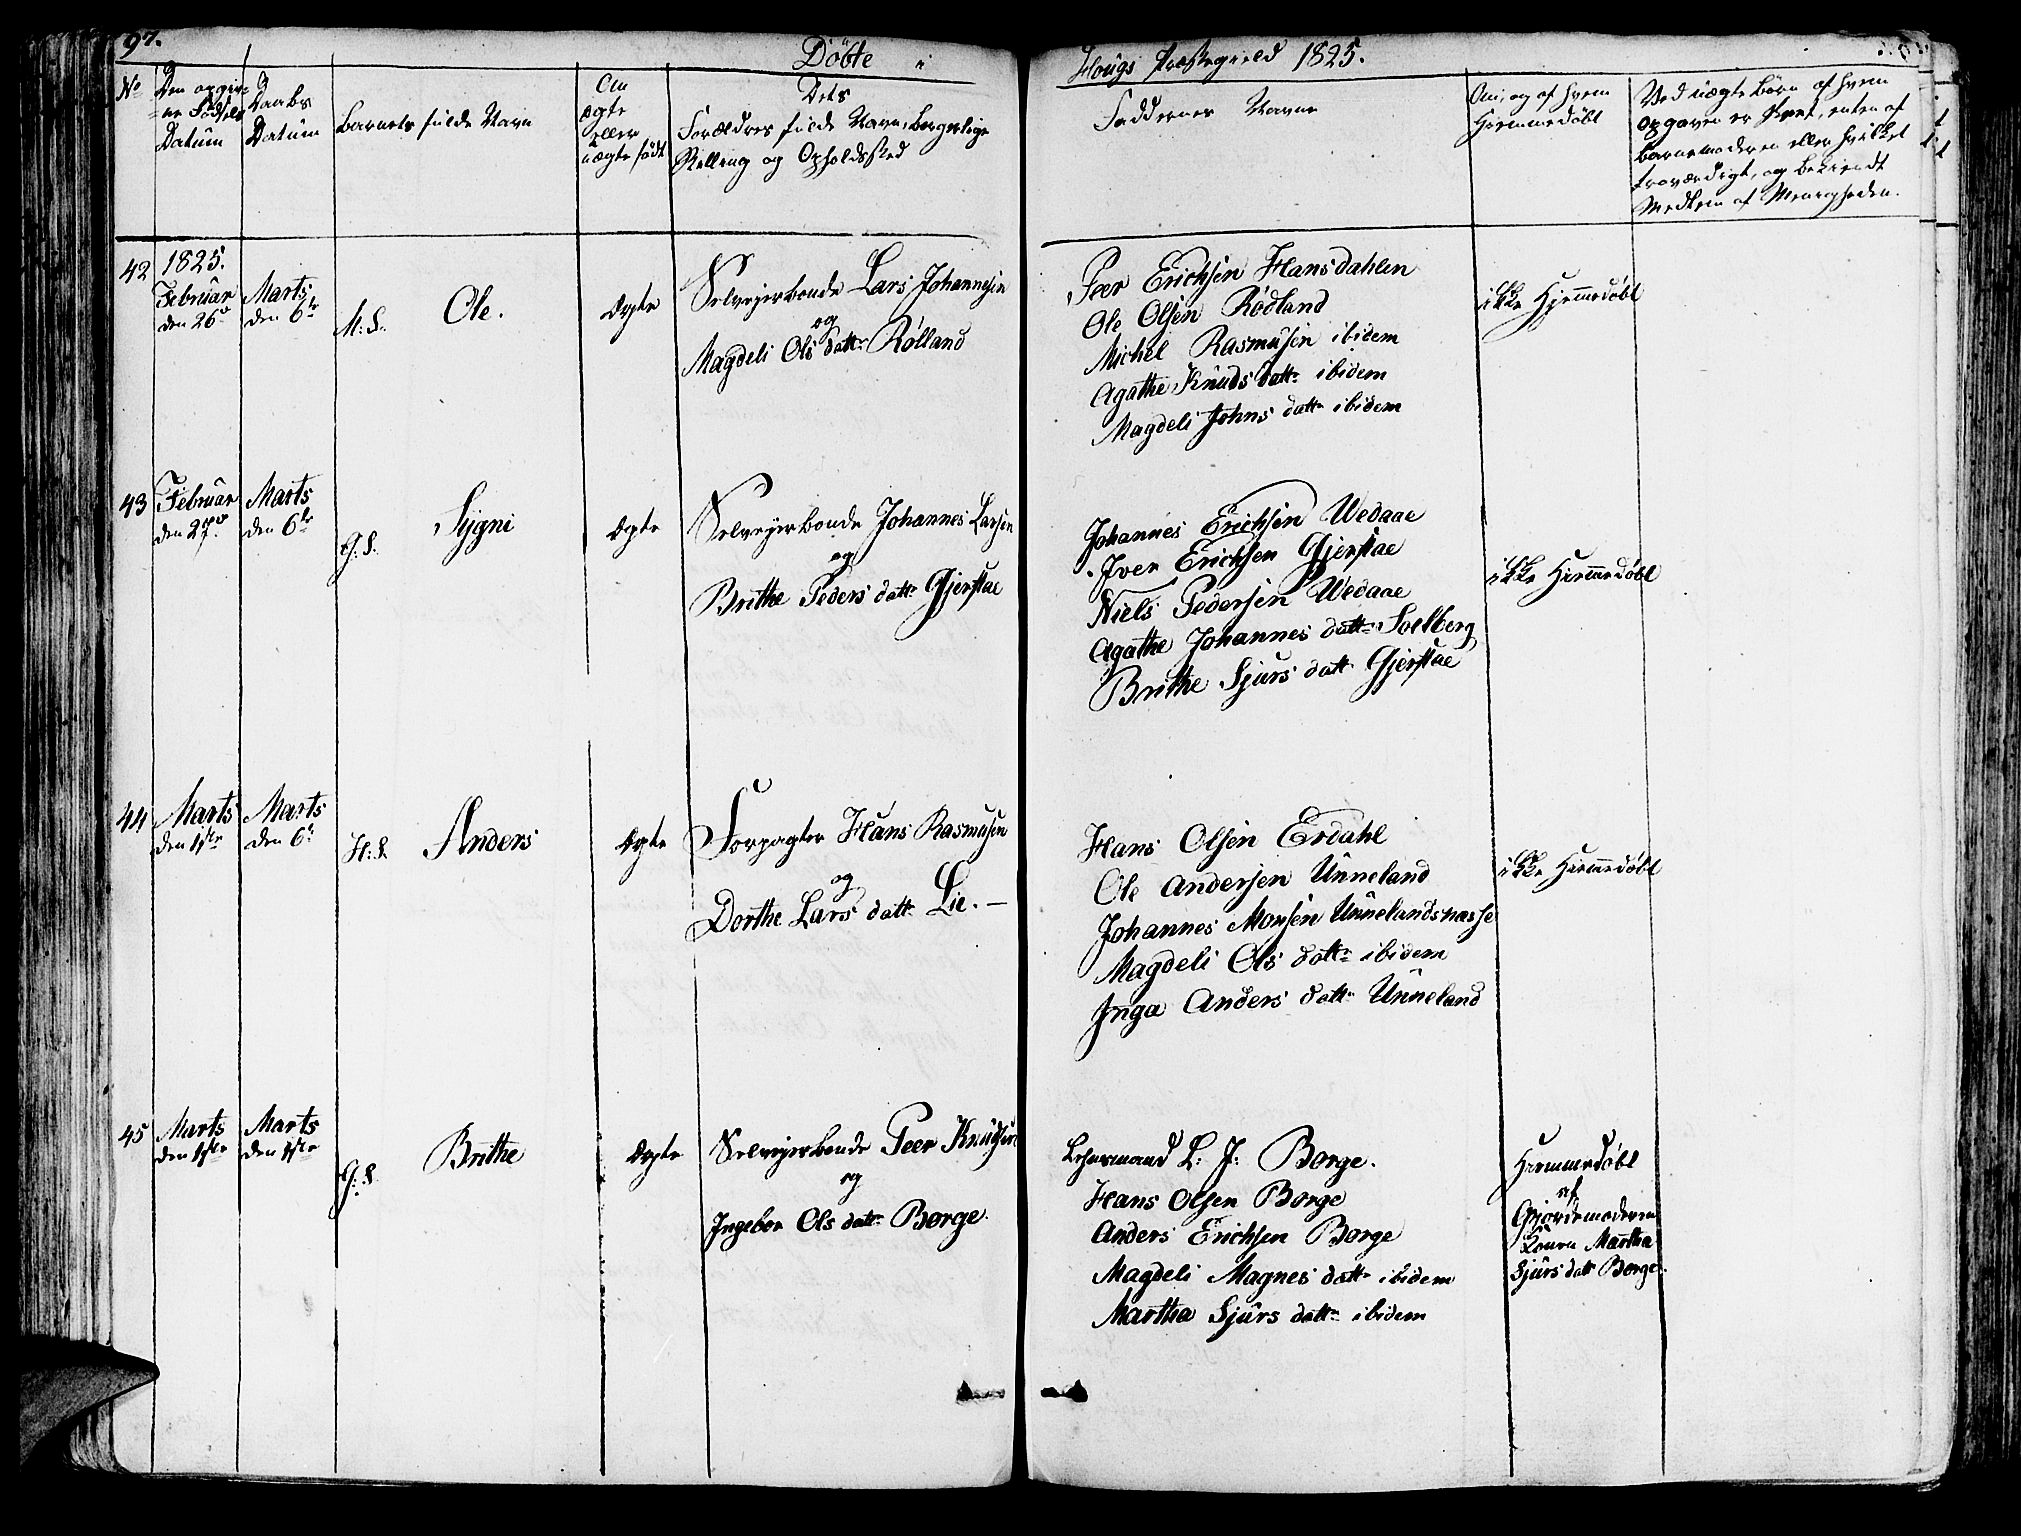 97.
Döbte i Hougs Præstegield 1825.
No
Den opgiv-
ne Födsels
Datum
Daabs
Datum
Barnets fulde Navn
Om
ægte
eller
uægte födt
Dets
Forældres fulde Navn, borgerlige
Stilling og Opholdssted
Faddernes Navne
Om, og af hvem
Hiemmedöbt
Ved uægte börn af hvem
Opgaven er skeet, enten af
Barnemoderen eller hvilket
troværdigt, og bekiendt
Medlem af Menigheden.
42
1825.
Februar
den 26de
Marts
den 6te
M: S.
Ole.
Ægte
Selveyerbonde Lars Johannesen
og
Magdeli Ols datr Rölland
Peer Erichsen Hansdahlen
Ole Olsen Rödland
Michel Rasmusen ibidem
Agathe Knuds datr ibidem
Magdeli Johns datr ibidem
ikke Hjemmedöbt
43
Februar
den 27de
Marts
den 6te
G: S.
Sygni
Ægte
Selveyerbonde Johannes Larsen
og
Brithe Peders datr Gjerstae
Johannes Erichsen Wedaae
Iver Erichsen Gjerstae
Niels Pedersen Wedaae
Agathe Johannes datr Soelberg
Brithe Sjurs datr Gjerstae
ikke Hiemmedöbt
44
Marts
den 1ste
Marts
den 6te
H: S.
Anders
Ægte
Forpagter Hans Rasmusen
og
Dorthe Lars datr Lie. —
Hans Olsen Erdahl
Ole Andersen Unneland
Johannes Monsen Unnelandsnæsse
Magdeli Ols datr ibidem
Inga Anders datr Unneland
ikke Hiemmedöbt
45
Marts
den 1ste
Marts
den 1ste
G: S.
Brithe
Ægte
Selveyerbonde Peer Knudsen
og
Ingebor Ols datr Borge.
Lehnsmand L: J: Borge.
Hans Olsen Borge
Anders Erichsen Borge
Magdeli Magnes datr ibidem
Martha Sjurs datr ibidem
Hiemmedöbt
af
Gjordemoderen
Konen Martha
Sjurs datr Borge.